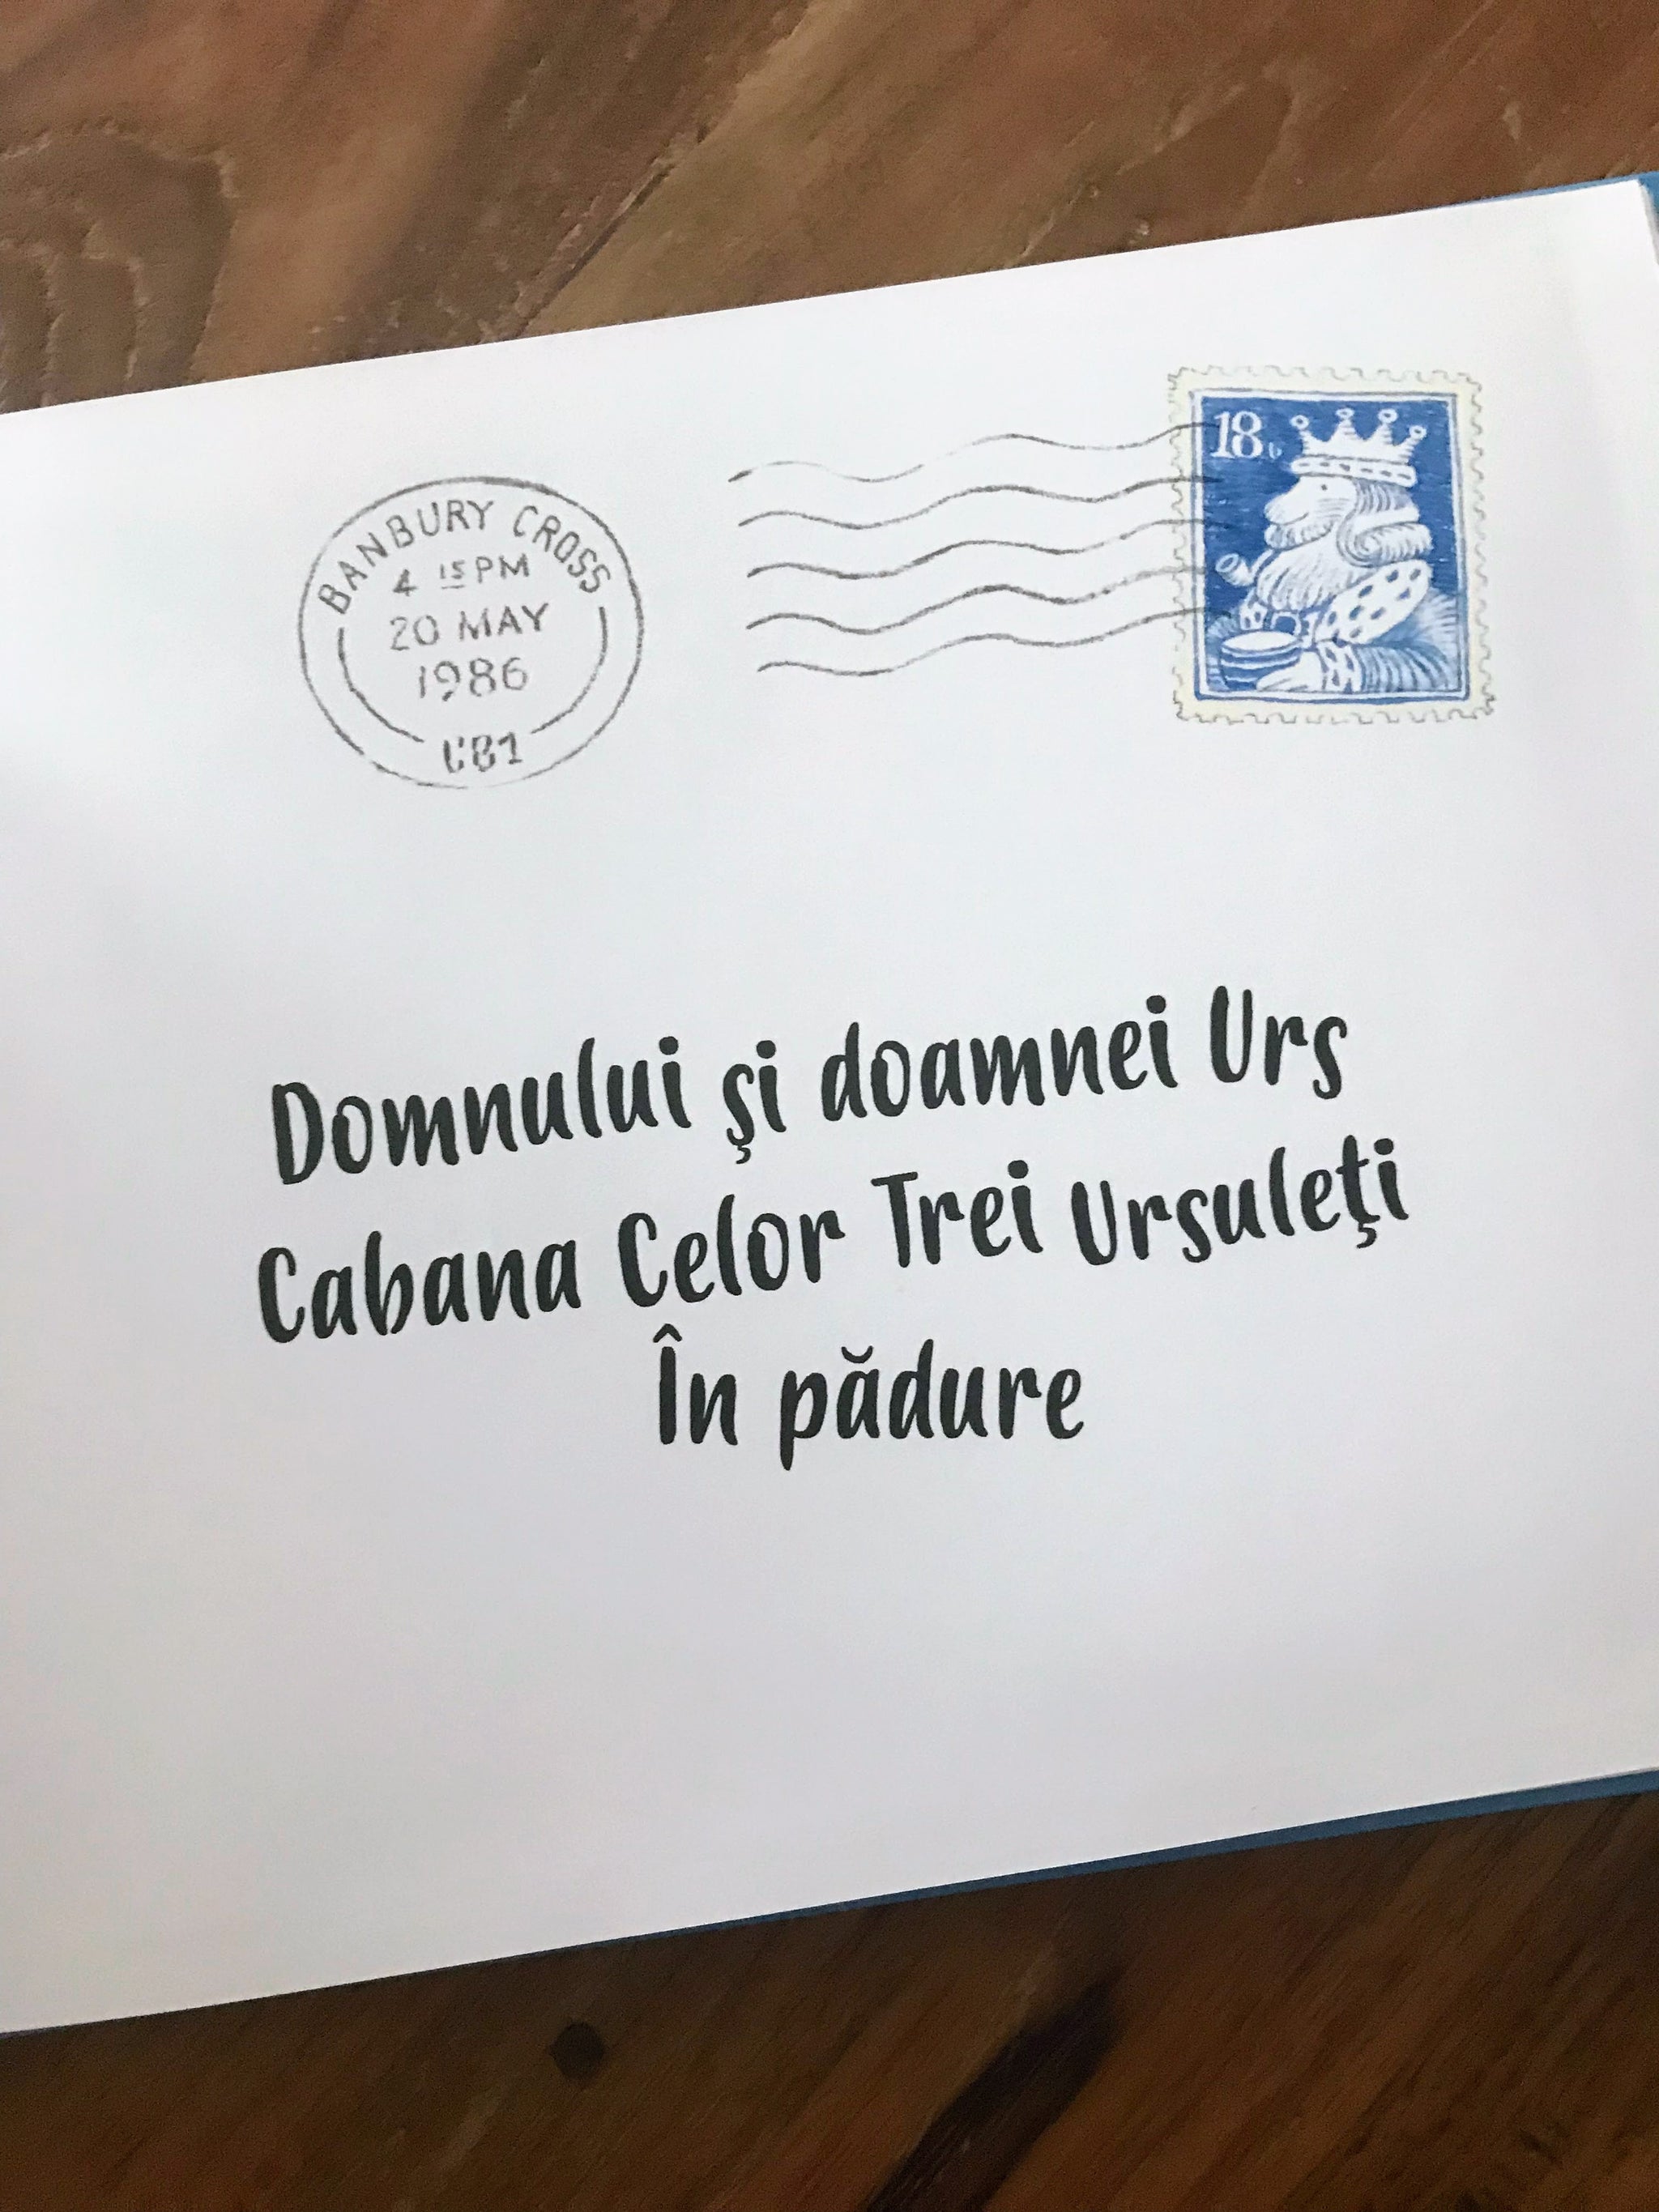 BANBURY CROSS
4 15 PM
20 MAY
1986
18
Domnului şi doamnei Urs
Cabana Celor Trei Ursuleţi
În pădure